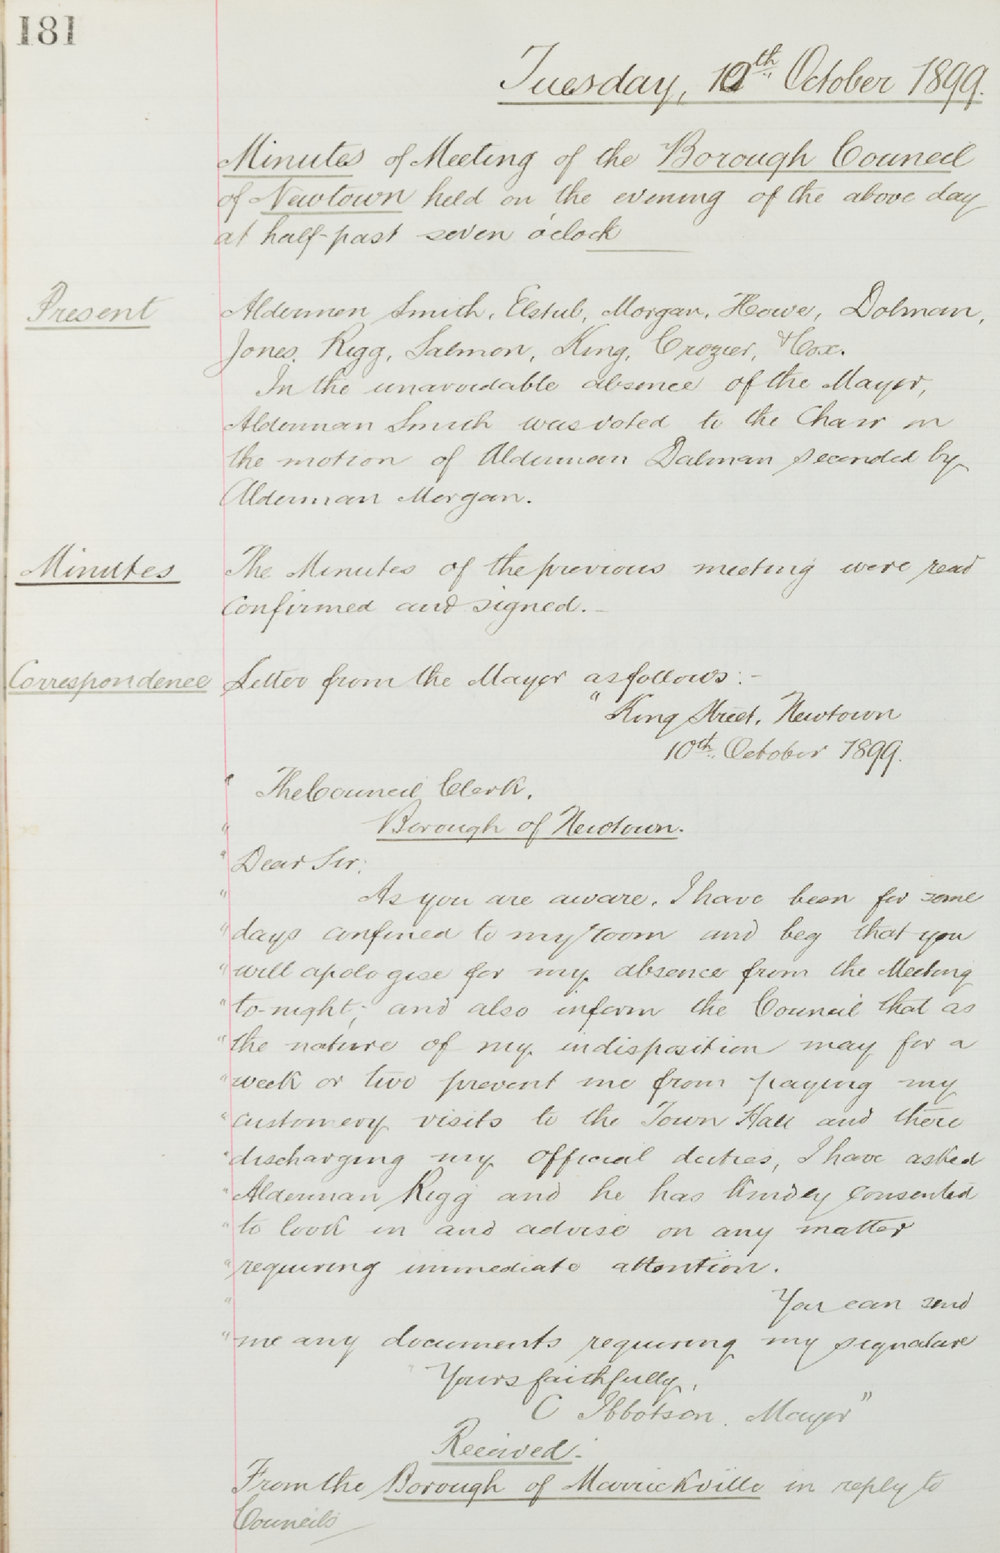 181
Tuesday, 10th October 1899.
Minutes of Meeting of the Borough Council
of Newtown held on the evening of the above day
at half-past seven o'clock
Present
Aldermen Smith, Elstub, Morgan, Howe, Dolman,
Jones, Rigg, Salmon, King, Crozier, & Cox.
In the unavoidable absence of the Mayor,
Alderman Smith was voted to the Chair on
the motion of Alderman Dolman seconded by
Alderman Morgan.
Minutes
The Minutes of the previous meeting were read
confirmed and signed.—
Correspondence
Letter from the Mayor as follows:-
"King Street, Newtown
10th October 1899.
" The Council Clerk,
" Borough of Newtown.
" Dear Sir,
" As you are aware, I have been for some
" days confined to my room and beg that you
" will apologise for my absence from the Meeting
" to-night; and also inform the Council that as
" the nature of my indisposition may for a
" week or two prevent me from paying my
" customery visits to the Town Hall and there
" discharging my official duties, I have asked
" Alderman Rigg and he has kindly consented
" to look in and advise on any matter
" requiring immediate attention.
" You can send
" me any documents requiring my signature
" Yours faithfully,
C Ibbotson, Mayor"
Received.
From the Borough of Marrickville in reply to
Council's